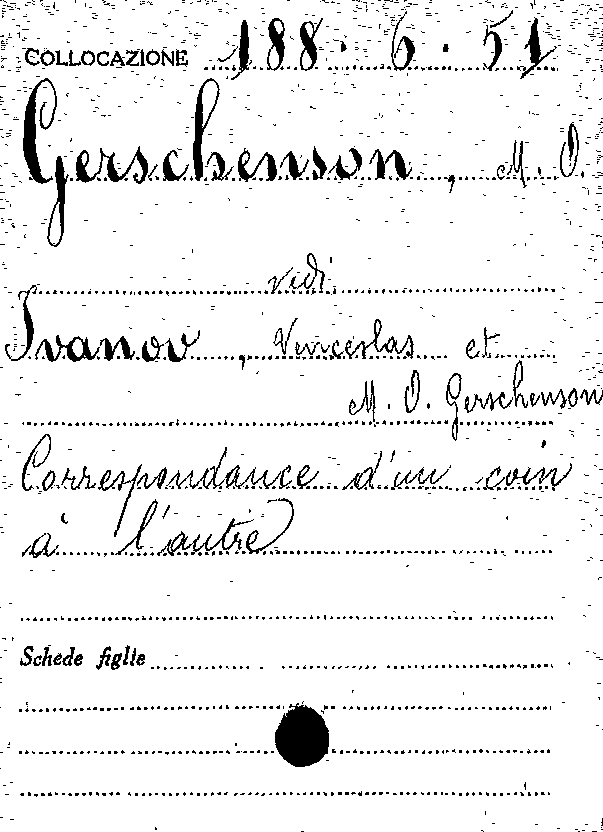 COLLOCAZIONE 188. 6. 51
Gerschenson, M. O.
vedi
Ivanov, Venceslas et
M. O. Gerschenson
Correspondance d'un coin
à l'autre
Schede figlie